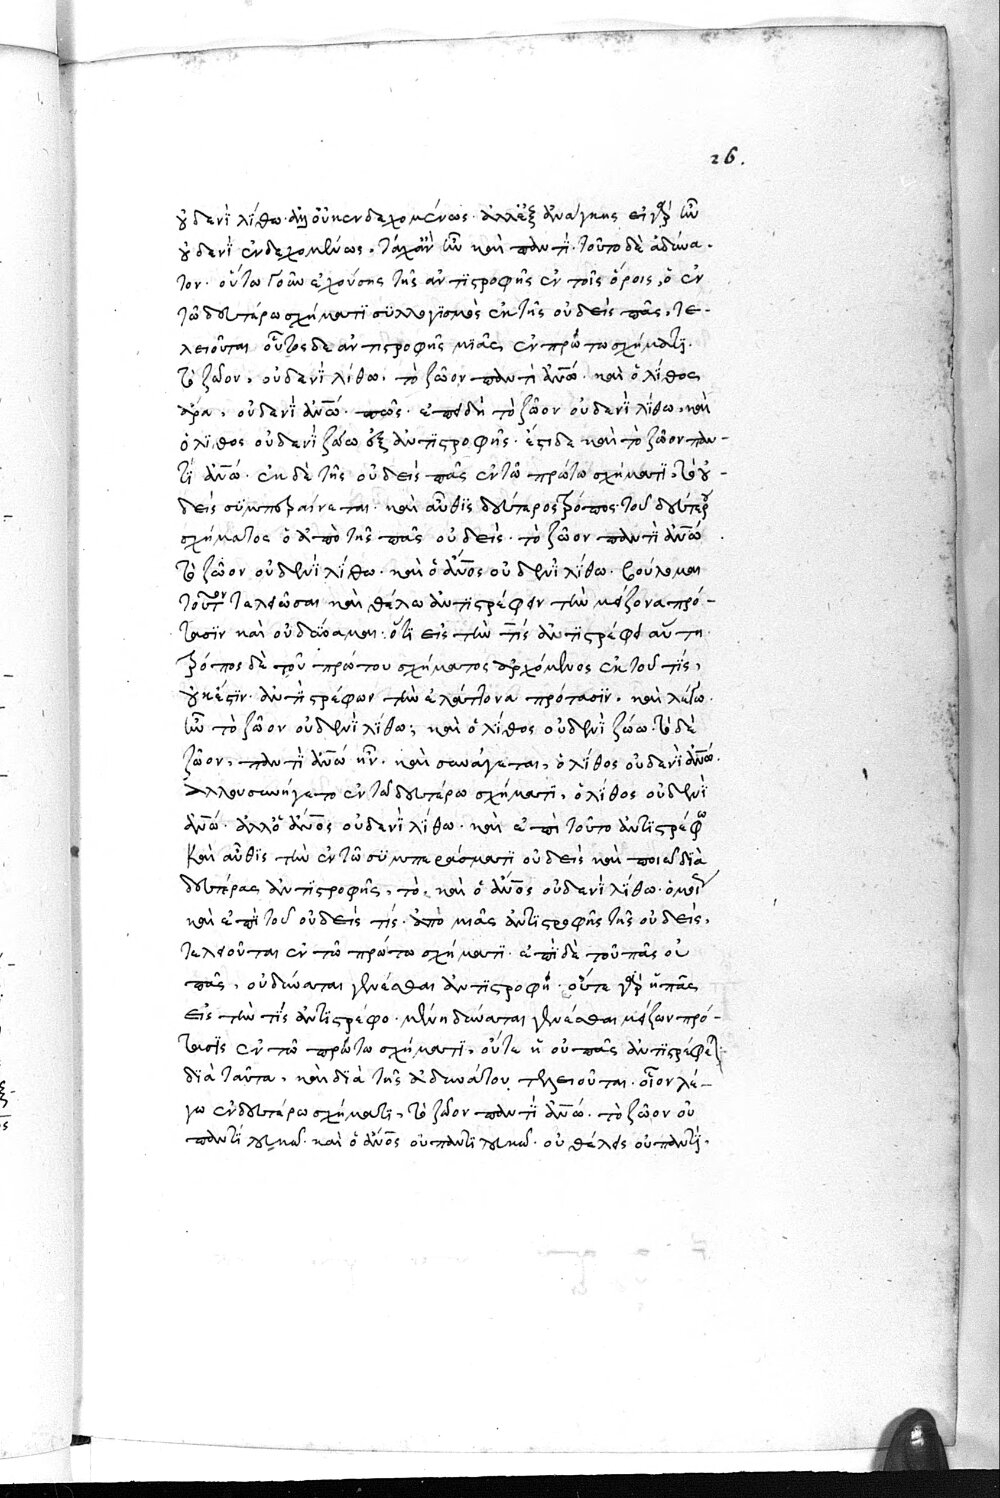 26.
οὐδενὶ λίθω· ἀλλ' οὐκ ἐνδεχομένως· ἀλλ' ἐξ ἀνάγκης εἰ γὰρ ἦν
οὐδενὶ ἐνδεχομένως, τάχ' ἂν ἦν καὶ παντί· τοῦτο δὲ ἀδύνα-
τον· οὕτω γοῦν ἐχούσης τῆς ἀντιστροφῆς ἐν τοῖς ὅροις, ὁ ἐν
τῶ δευτέρω σχήματι συλλογισμὸς ἐκ τῆς οὐδεὶς πᾶς, τε-
λειοῦται οὕτως δι' ἀντιστροφῆς μιᾶς, ἐν πρώτω σχήματι.
τὸ ζῶον, οὐδενὶ λίθω, τὸ ζῶον παντὶ ἀνω· καὶ ὁ λίθος
ἄρα, οὐδενὶ ἀνω· πῶς· ἐπειδὴ τὸ ζῶον οὐδενὶ λίθω, καὶ
ὁ λίθος οὐδενὶ ζώω ἐξ ἀντιστροφῆς· ἔστι δὲ καὶ τὸ ζῶον παν-
τὶ ἀνω· ἐκ δὲ τῆς οὐδεὶς πᾶς ἐν τῶ πρώτω σχήματι, τὸ οὐ-
δεὶς συμπεραίνεται· καὶ αὖθις δεύτερος τρόπος τοῦ δευτέρου
σχήματος ὁ ἀπὸ τῆς πᾶς οὐδείς· τὸ ζῶον παντὶ ἀνω
τὸ ζῶον οὐδενὶ λίθω· καὶ ὁ ἄνος οὐδενὶ λίθω· βούλομαι
τοῦτον τελειῶσαι καὶ θέλω ἀντιστρέφειν τὴν μείζονα πρό-
τασιν καὶ οὐ δύναμαι· ὅτι εἰς τὴν τὶς ἀντιστρέφει αὕτη·
τρόπος δὲ τοῦ πρώτου σχήματος ἀρχόμενος ἐκ τοῦ τίς,
οὐκ ἔστιν· ἀντιστρέφων τὴν ἐλάττονα πρότασιν, καὶ λέγω·
ἦν τὸ ζῶον οὐδενὶ λίθω; καὶ ὁ λίθος οὐδενὶ ζώω· τὸ δὲ
ζῶον, παντὶ ἀνω ἦν· καὶ συνάγεται, ὁ λίθος οὐδενὶ ἀνω·
ἀλλ' οὐ συνήγετο ἐν τῶ δευτέρω σχήματι, ὁ λίθος οὐδενὶ
ἀνω· ἀλλ' ὁ ἄνος οὐδενὶ λίθω· καὶ ἐπὶ τοῦτο ἀντιστρέφω
καὶ αὖθις τὴν ἐν τῶ συμπεράσματι οὐδεὶς καὶ ποιῶ διὰ
δευτέρας ἀντιστροφῆς, τὸ, καὶ ὁ ἄνος οὐδενὶ λίθω· ὁμοίως
καὶ ἐπὶ τοῦ οὐδεὶς τίς· ἀπὸ μιᾶς ἀντιστροφῆς τῆς οὐδείς,
τελειοῦται ἐν τῶ πρώτω σχήματι· ἐπὶ δὲ τοῦ πᾶς οὐ
πᾶς, οὐ δύναται γενέσθαι ἀντιστροφή· οὔτε γὰρ ἡ πᾶς
εἰς τὴν τὶς ἀντιστρέφο· μένη δύναται γενέσθαι μείζων πρό-
τασις ἐν τῶ πρώτω σχήματι, οὔτε ἡ οὐ πᾶς ἀντιστρέφει·
διὰ ταῦτα, καὶ διὰ τῆς ἀδυνάτου τελειοῦται· οἷον λέ-
γω ἐν δευτέρω σχήματι, τὸ ζῶον παντὶ ἀνω· τὸ ζῶον οὐ
παντὶ λευκῶ· καὶ ὁ ἄνος οὐ παντὶ λευκῶ· οὐ θέλεις οὐ παντί,